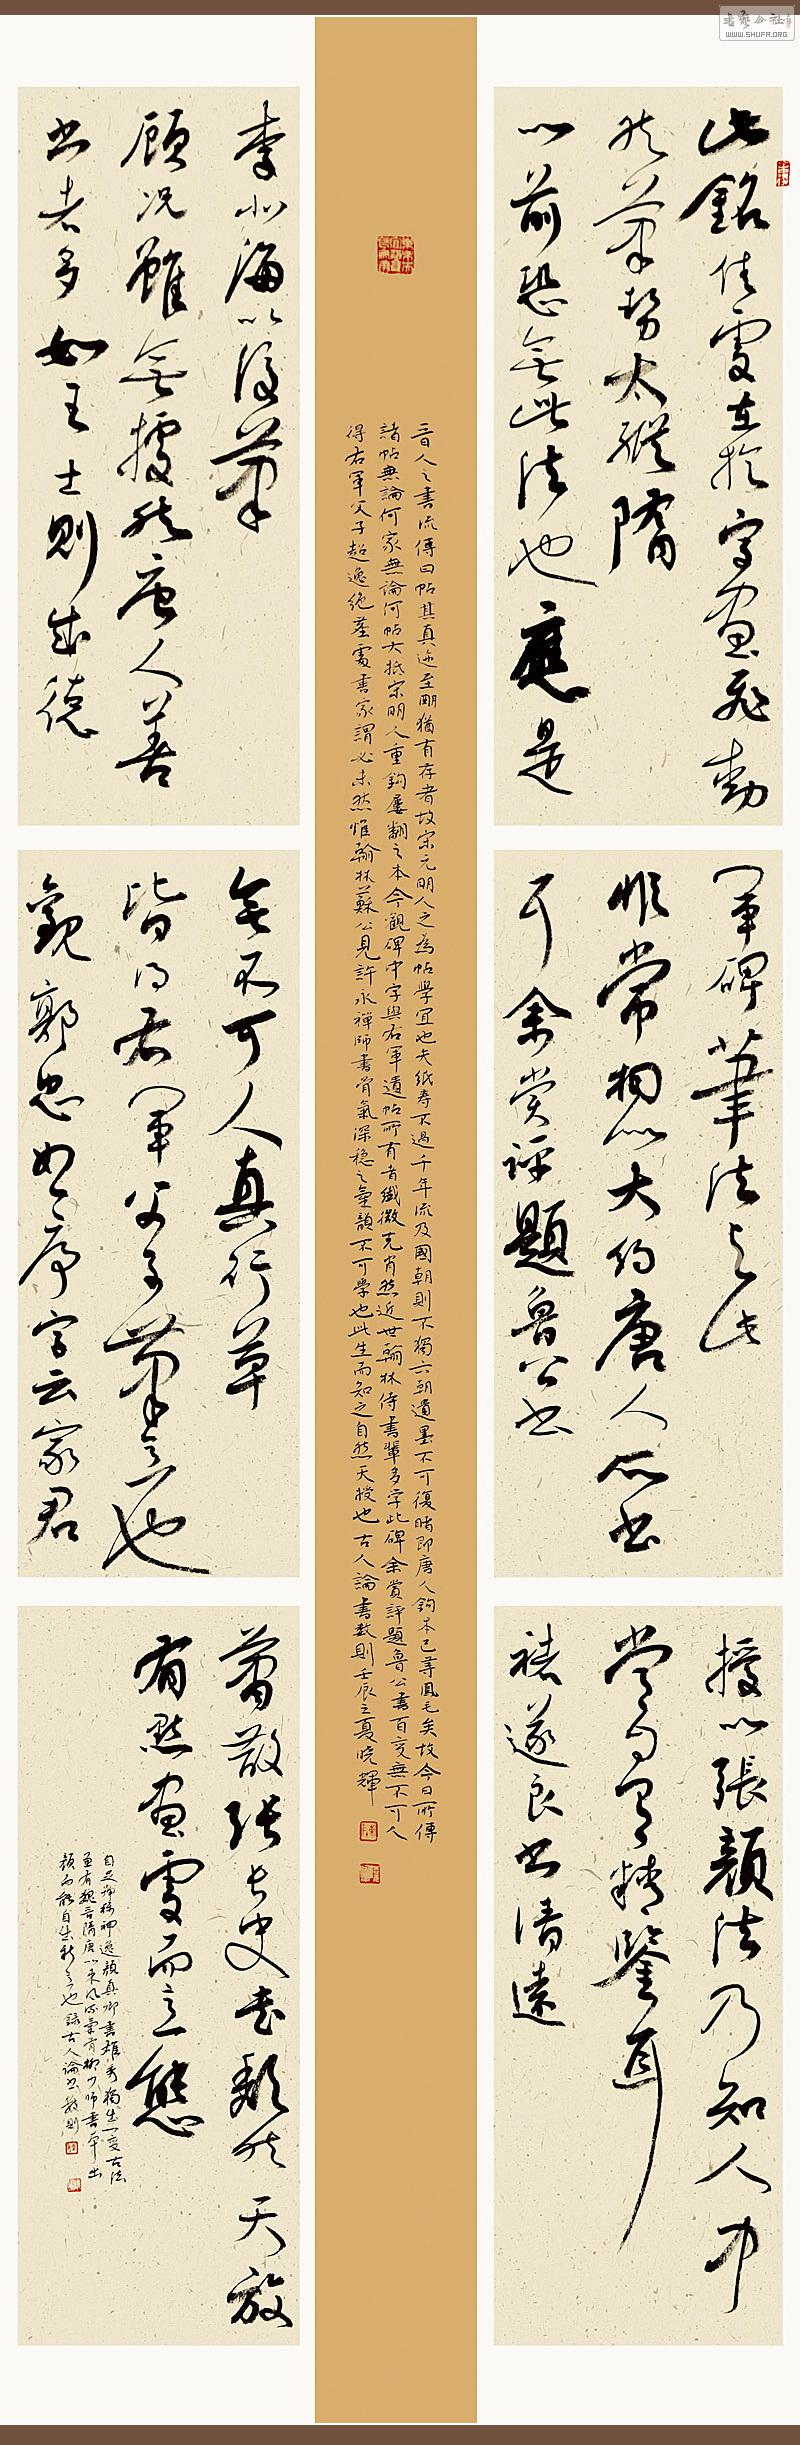 此銘佳處在於字畫飛動
然筆勢太縱隋
以前恐無此法也應是
李北海以後筆
顧況雖無據然唐人善
書者多如王士則成德
軍碑筆法與此
非常相似大約唐人所書
耳余嘗評題魯公書
無不可人真行草
皆得右軍父子筆意也
觀郭忠恕序字云家君
授以張顏法乃知人中
嘗自有精鑒耳
褚遂良書清遠
蕭散張長史書頹然天放
有點畫處而意態
自足號稱神逸顏真卿書雄秀獨生一變古法
有魏晉隋唐以來風流氣骨柳少師書本出
顏而能自出新意也錄古人論書數則
晉人之書流傳曰帖其真迹至明猶有存者故宋元明人之為帖學宜也夫紙壽不過千年流及國朝則不獨六朝遺墨不可復睹即唐人鉤本已等鳳毛矣故今日所傳
諸帖無論何家無論何帖大抵宋明人重鉤屢翻之本今觀碑中字與右軍遺帖所有者纖微克肖然近世翰林侍書輩多字此碑余嘗評題魯公書百變無不可人
得右軍父子超逸絕塵處書家謂必未然惟翰林蘇公見許永禪師書骨氣深穩之氣韻不可學也此生而知之自然天授也古人論書數則壬辰之夏曉輝
書藝公社
WWW.SHUFA.ORG